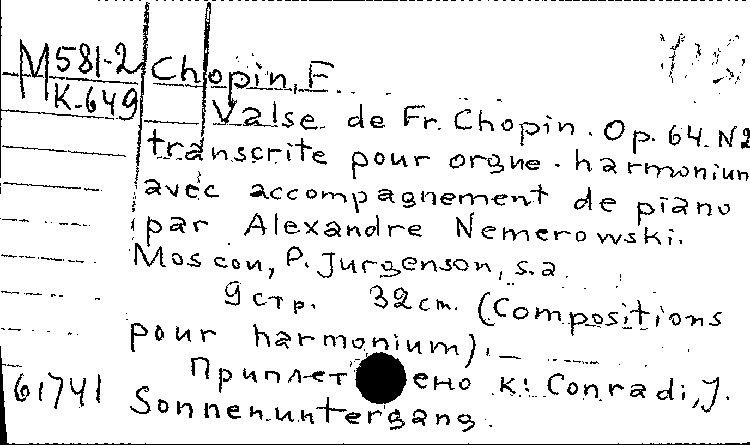 M 581-2 Chopin, F.
K-649
Valse de Fr. Chopin. Op. 64. N2
transcrite pour orgue-harmonium
avec accompagnement de piano
par Alexandre Nemerowski.
Moscou, P. Jurgenson, s.a.
9 стр. 32 cm. (Compositions
pour harmonium).
Приплетено к: Conradi, J.
61741 Sonnenuntergang.